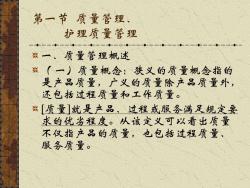 第一节 质量管理、
护理质量管理
一、质量管理概述
（一）质量概念：狭义的质量概念指的
是产品质量，广义的质量除产品质量外，
还包括过程质量和工作质量。
[质量]就是产品、过程或服务满足规定要
求的优劣程度。从该定义可以看出质量
不仅指产品的质量，也包括过程质量、
服务质量。